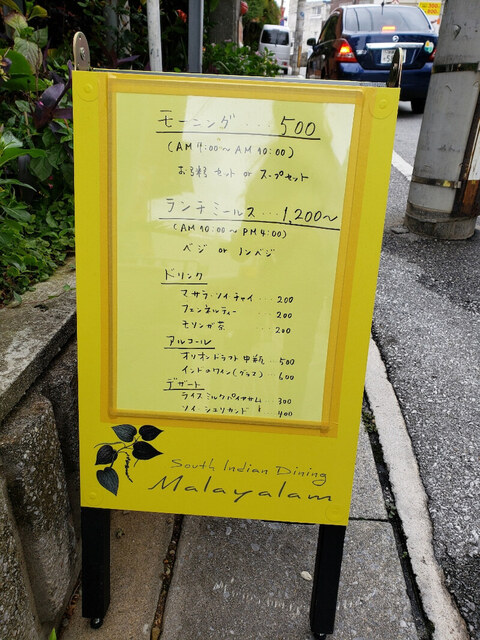 モーニング・・・・500
(AM 7:00〜AM 10:00)
お粥セット or スープセット
ランチミールス・・・1,200〜
(AM 10:00〜PM 4:00)
ベジ or ノンベジ
ドリンク
マサラ・ソイ・チャイ・・・200
フェンネルティー・・・200
モリンガ茶・・・200
アルコール
オリオンドラフト中瓶・・500
インドのワイン(グラス)・・600
デザート
ライスミルクパイヤサム・・・300
ソイ・シュリカンド・・・400
South Indian Dining
Malayalam